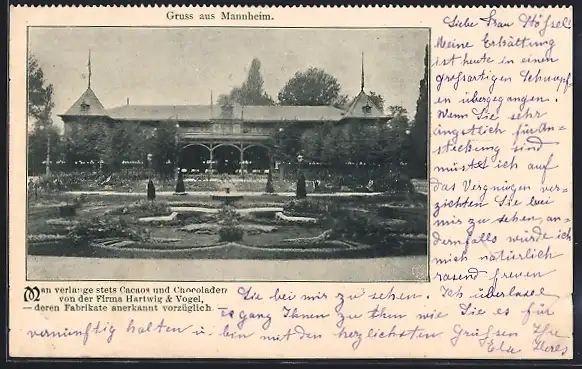 Gruss aus Mannheim.
Liebe Frau Stössel!
Meine Erkältung
ist heute in einen
großartigen Schnupf-
en übergegangen.
Wenn Sie sehr
ängstlich für An-
steckung sind
müsste ich auf
das Vergnügen ver-
zichten Sie bei
mir zu sehen, an-
dernfalls würde ich
mich natürlich
rasend freuen
Sie bei mir zu sehen. Ich überlasse
es ganz Ihnen zu thun wie Sie es für
vernünftig halten u. bin mit den herzlichsten Grüssen Ihre
Ela
Man verlange stets Cacaos und Chocoladen
von der Firma Hartwig & Vogel,
— deren Fabrikate anerkannt vorzüglich. —